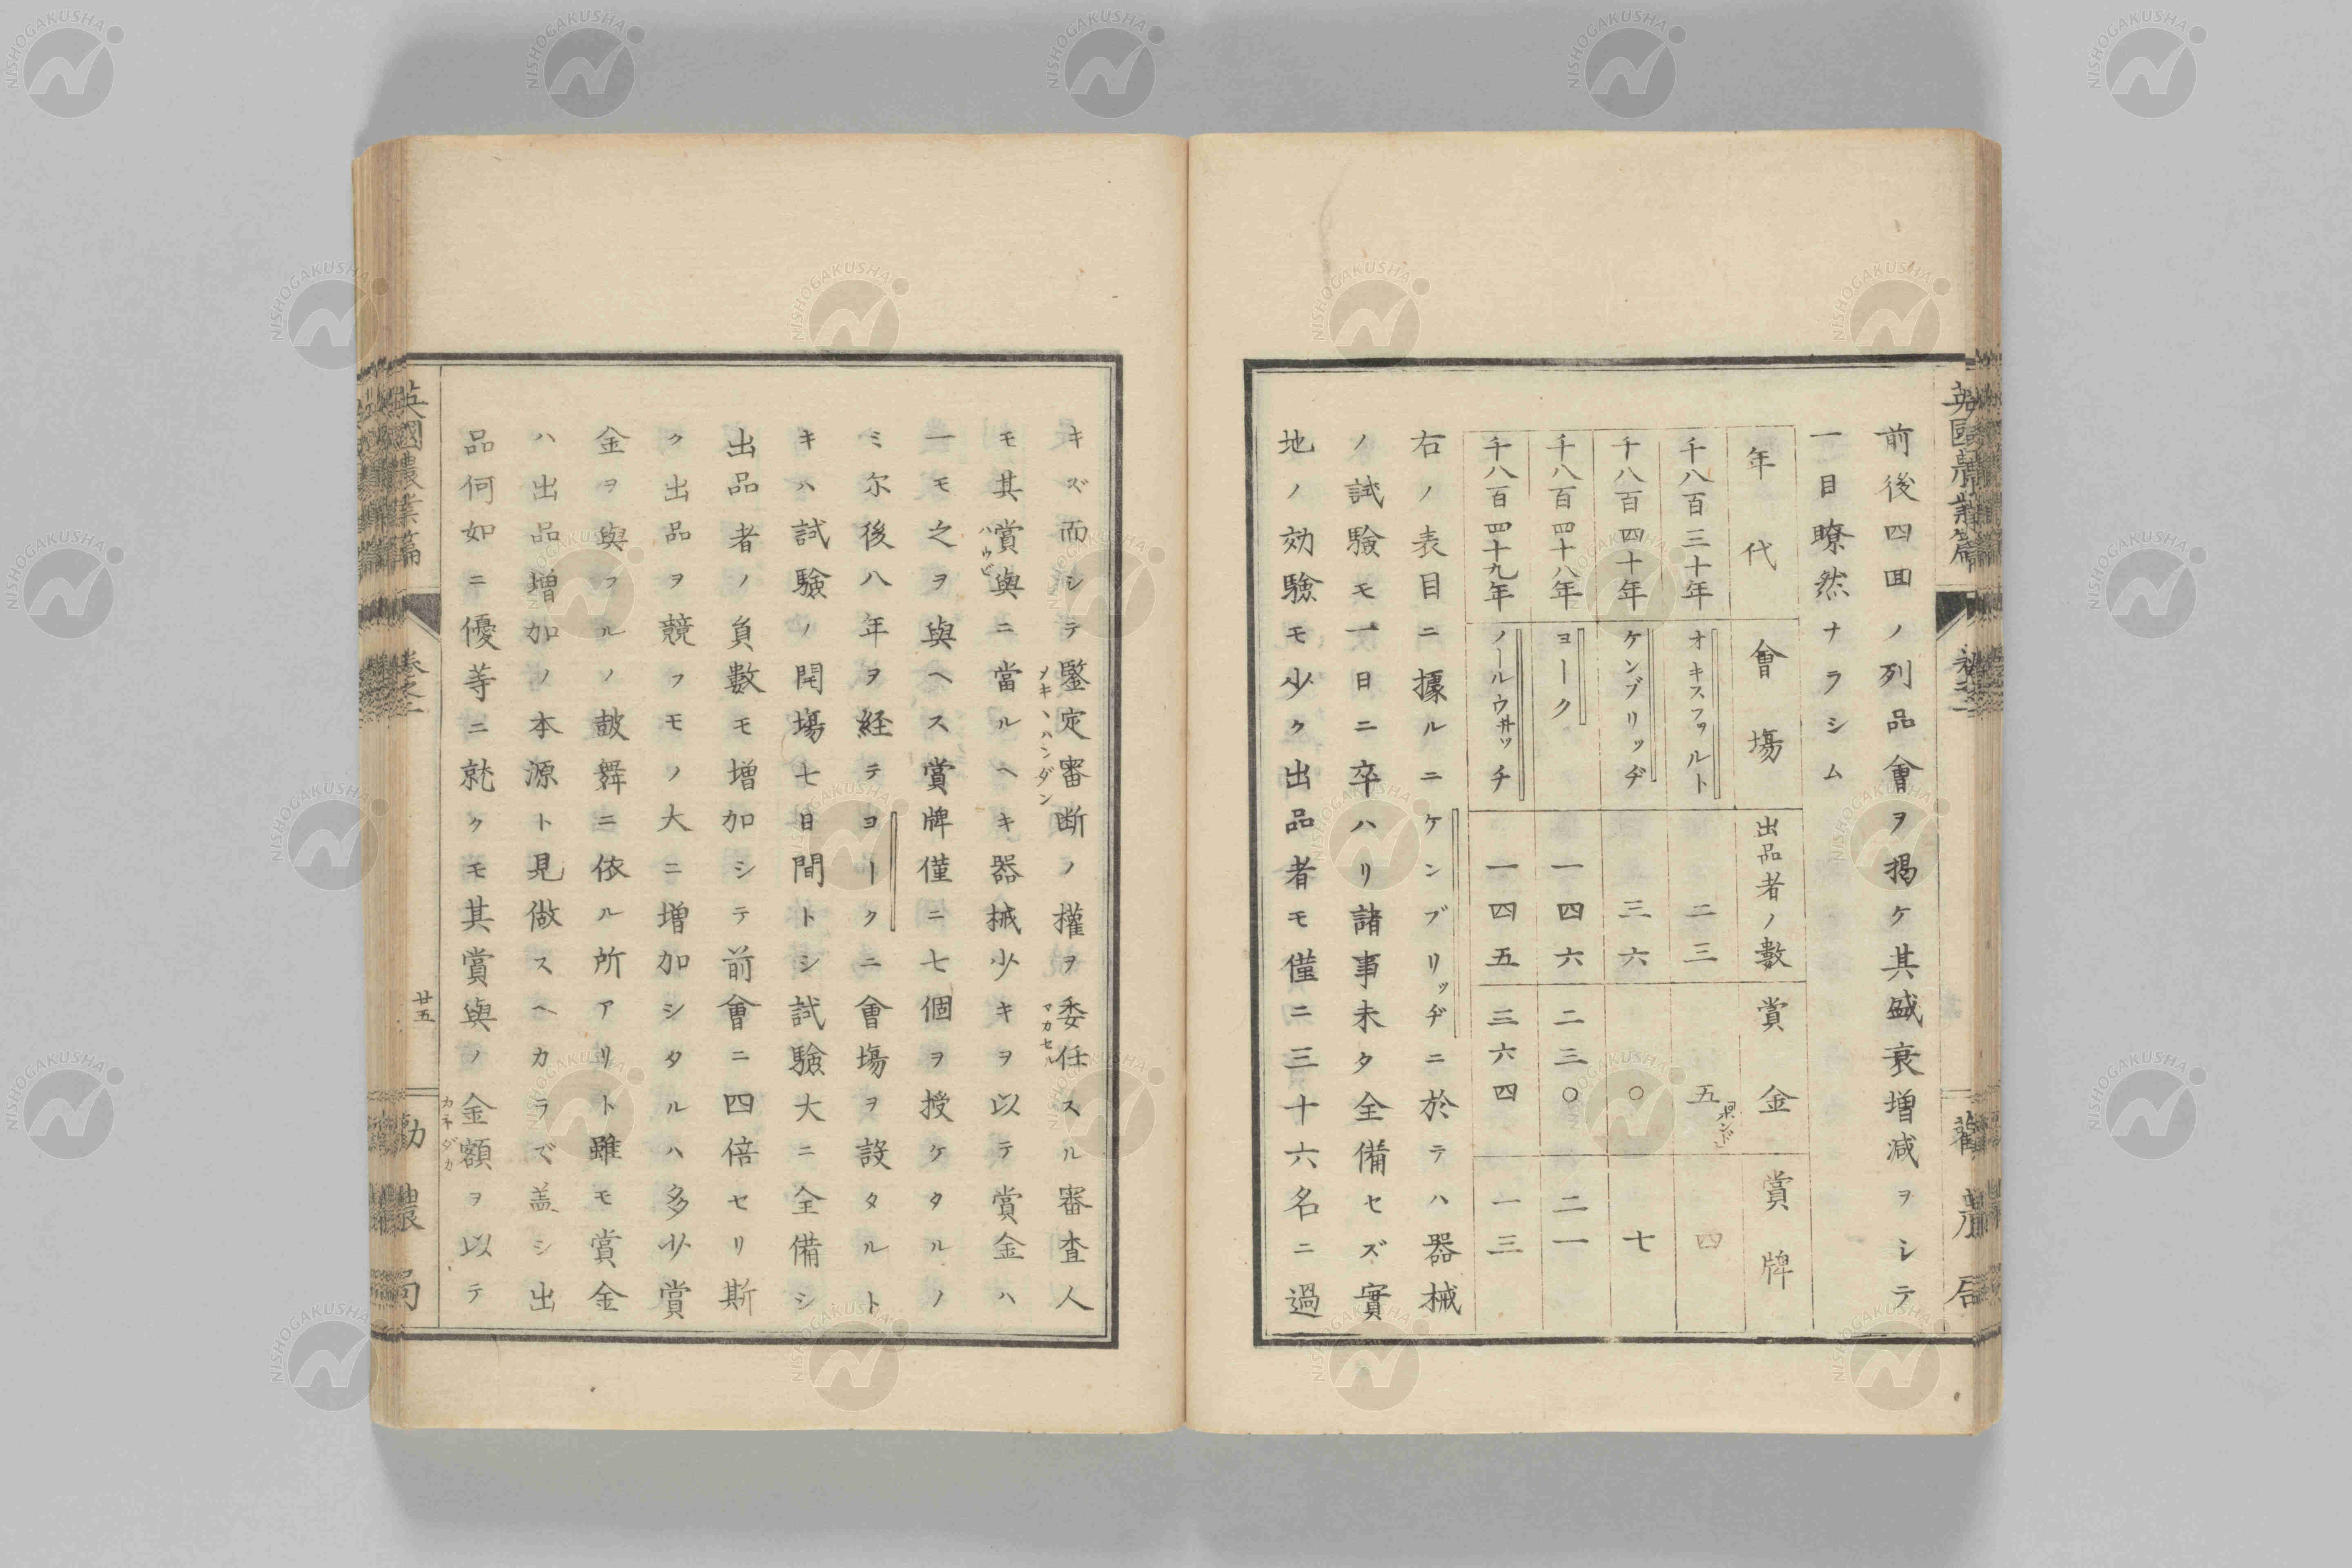 前後四囬ノ列品會ヲ揭ケ其盛衰増减ヲシテ
一目瞭然ナラシム
年代 會場 出品者ノ數 賞金 賞牌
千八百三十年 オキスフヮルト 二三 五ポンド 四
千八百四十年 ケンブリッヂ 三六 〇 七
千八百四十八年 ヨーク 一四六 二三〇 二一
千八百四十九年 ノールウ井ッチ 一四五 三六四 一三
右ノ表目ニ據ルニケンブリッヂニ於テハ器械
ノ試驗モ一日ニ卒ハリ諸事未タ全備セズ實
地ノ効驗モ少ク出品者モ僅ニ三十六名ニ過
キズ而シテ鑒定審断ノ權ヲ委任スル審査人
メキヽハンダン
マカセル
モ其賞與ニ當ルヘキ器械少キヲ以テ賞金ハ
ハウビ
一モ之ヲ與ヘス賞牌僅ニ七個ヲ授ケタルノ
ミ尔後八年ヲ経テヨークニ會塲ヲ設タルト
キハ試驗ノ開塲七日間トシ試驗大ニ全備シ
出品者ノ負數モ増加シテ前會ニ四倍セリ斯
ク出品ヲ競フモノ大ニ増加シタルハ多少賞
金ヲ與フルノ鼓舞ニ依ル所アリト雖モ賞金
ハ出品増加ノ本源ト見做スヘカラデ盖シ出
品何如ニ優等ニ就クモ其賞與ノ金額ヲ以テ
カネダカ
英國農業篇
卷之二
廿五
勸農局